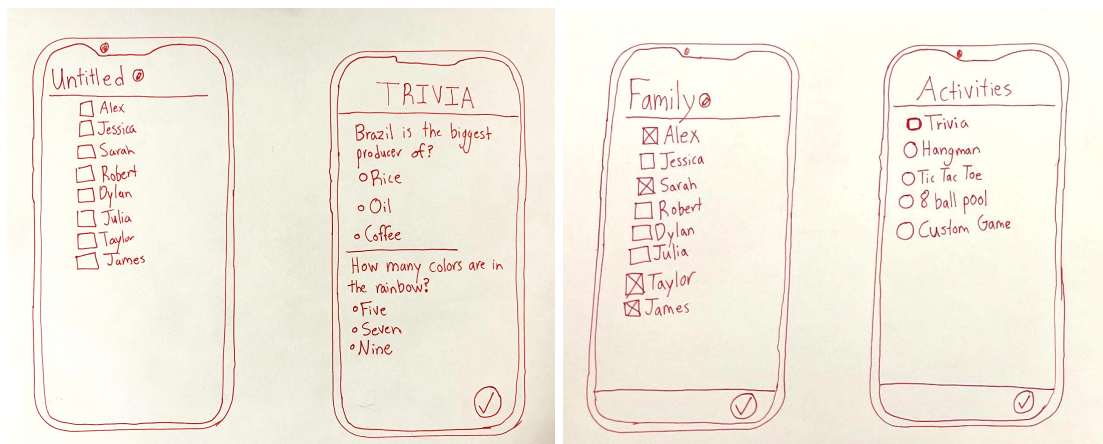 Untitled
Alex
Jessica
Sarah
Robert
Dylan
Julia
Taylor
James
TRIVIA
Brazil is the biggest
producer of?
Rice
Oil
Coffee
How many colors are in
the rainbow?
Five
Seven
Nine
Family
Alex
Jessica
Sarah
Robert
Dylan
Julia
Taylor
James
Activities
Trivia
Hangman
Tic Tac Toe
8 ball pool
Custom Game